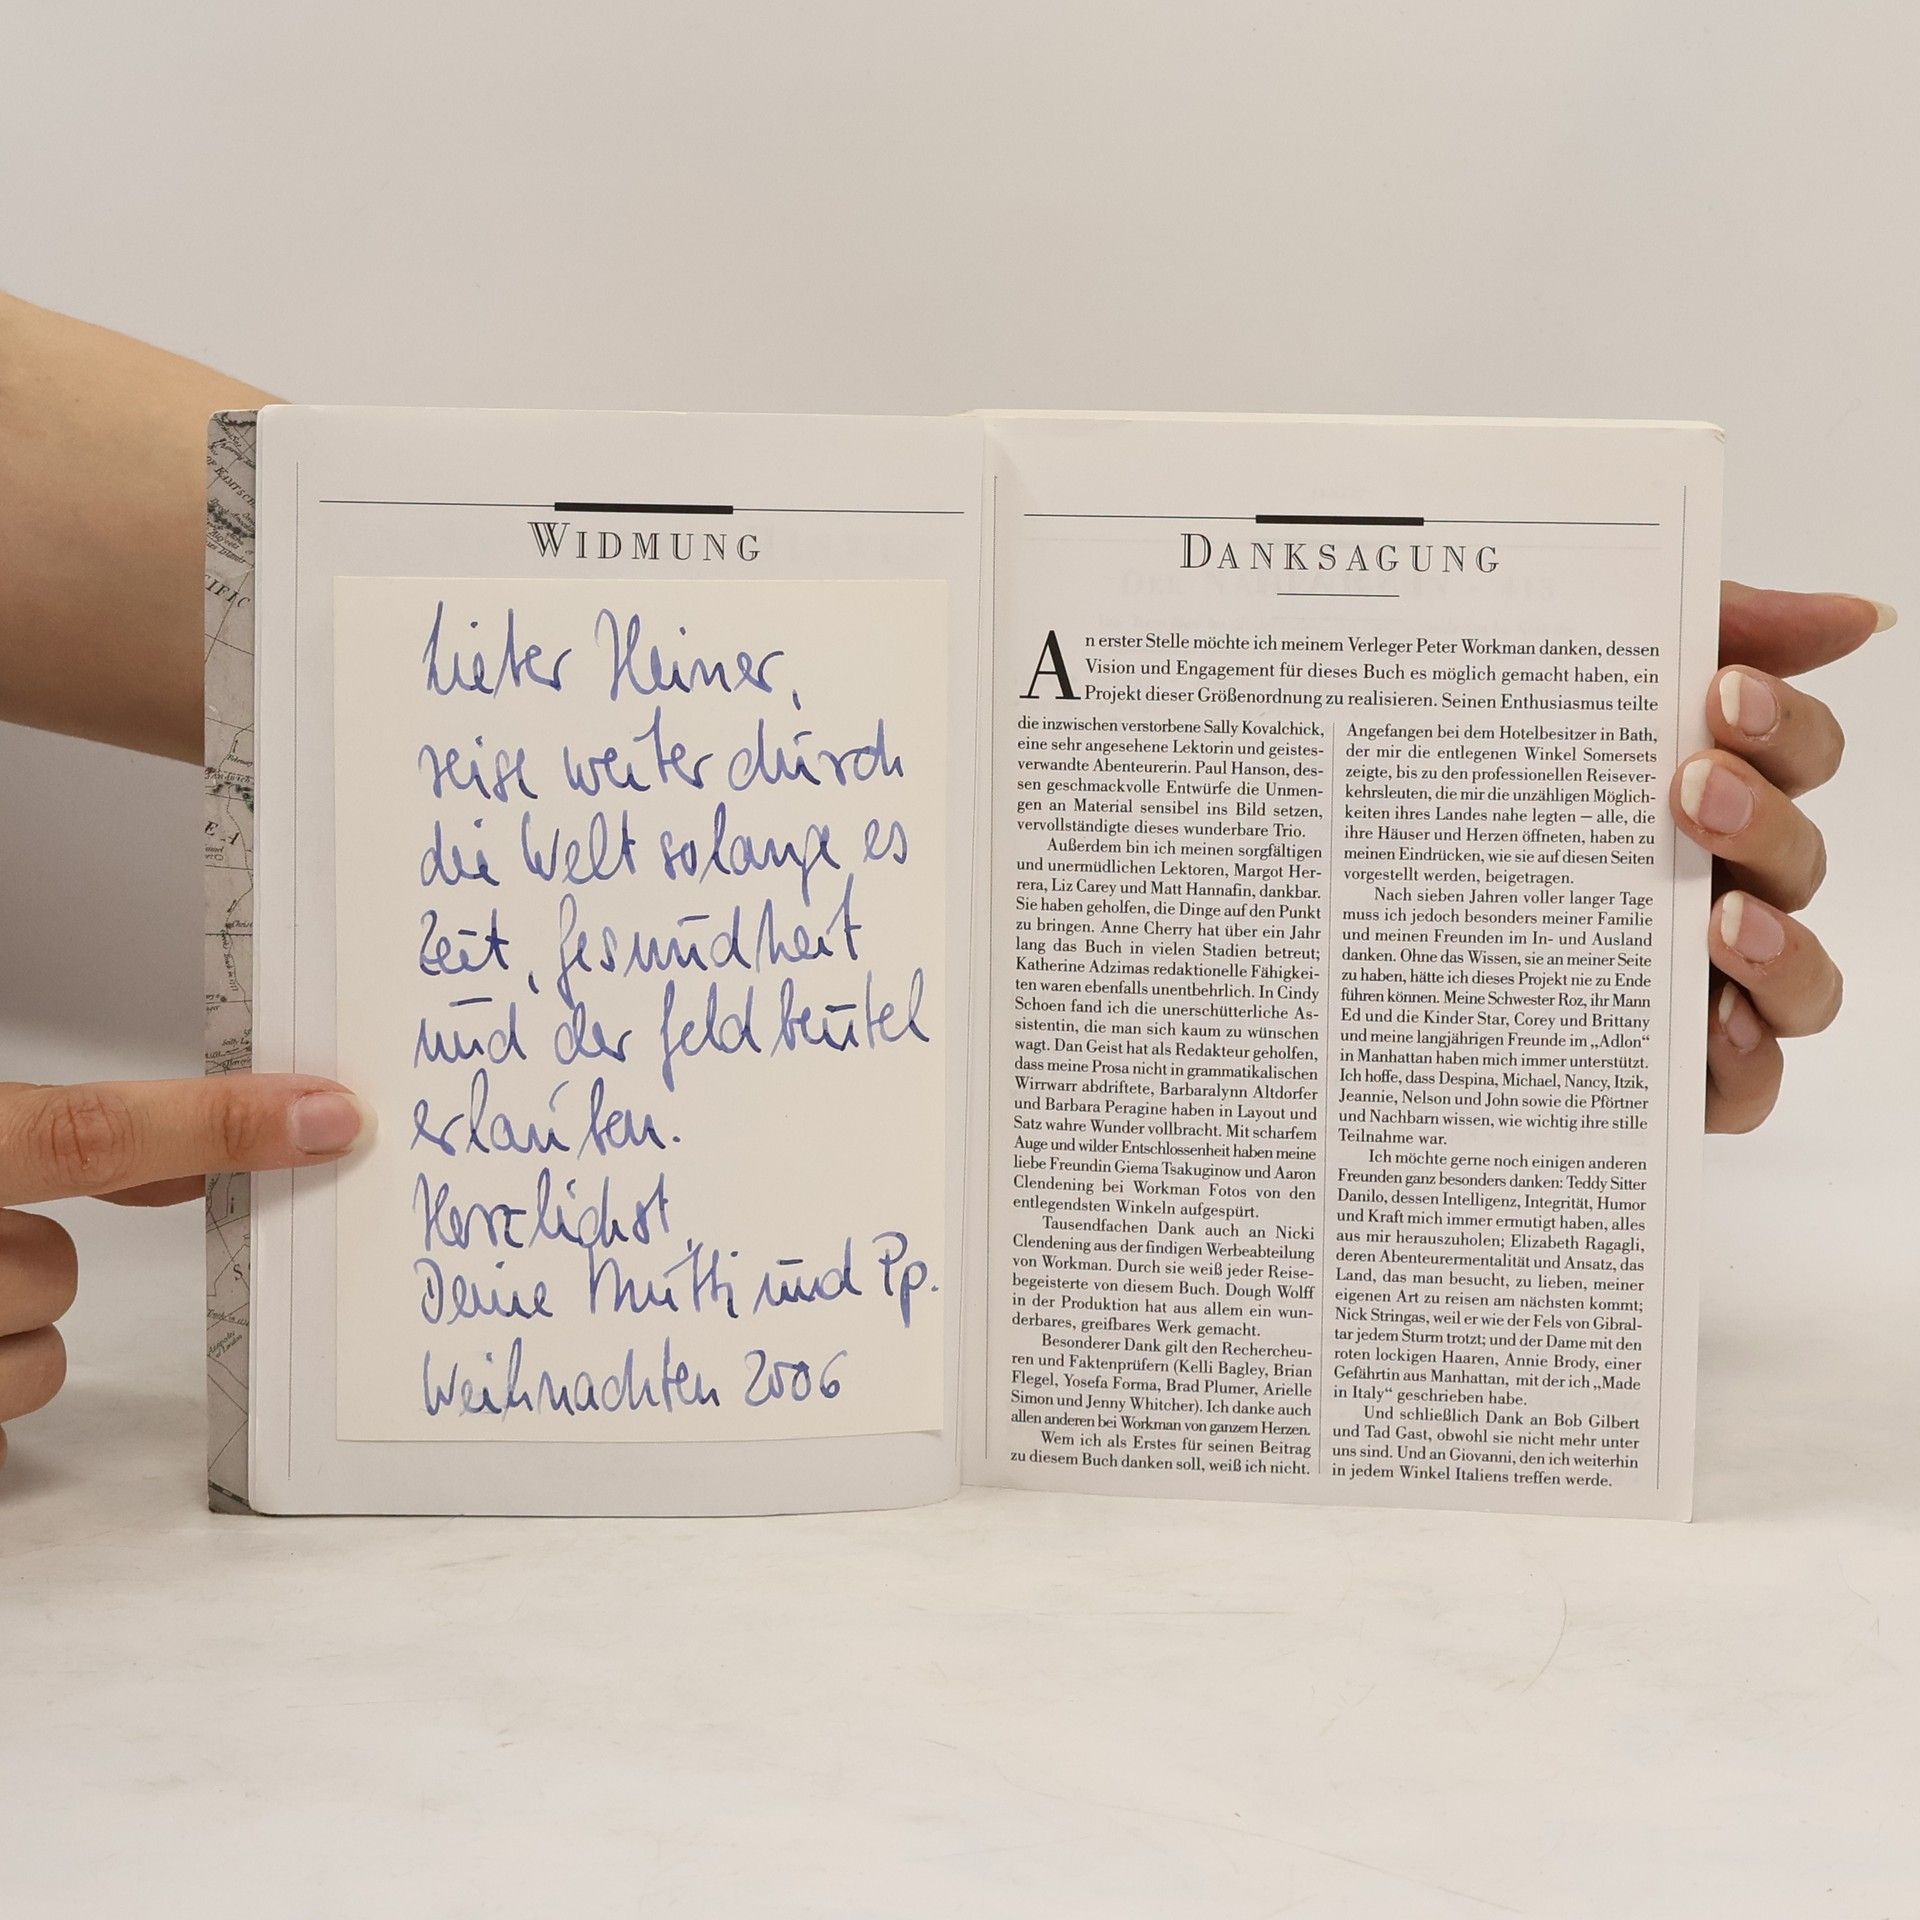 WIDMUNG
Lieber Heiner,
reise weiter durch
die Welt solange es
Zeit, Gesundheit
und der Geldbeutel
erlauben.
Herzlichst
Deine Mutti und Pp.
Weihnachten 2006
DANKSAGUNG
An erster Stelle möchte ich meinem Verleger Peter Workman danken, dessen
Vision und Engagement für dieses Buch es möglich gemacht haben, ein
Projekt dieser Größenordnung zu realisieren. Seinen Enthusiasmus teilte
die inzwischen verstorbene Sally Kovalchick,
eine sehr angesehene Lektorin und geistes-
verwandte Abenteurerin. Paul Hanson, des-
sen geschmackvolle Entwürfe die Unmen-
gen an Material sensibel ins Bild setzen,
vervollständigte dieses wunderbare Trio.
Außerdem bin ich meinen sorgfältigen
und unermüdlichen Lektoren, Margot Her-
rera, Liz Carey und Matt Hannafin, dankbar.
Sie haben geholfen, die Dinge auf den Punkt
zu bringen. Anne Cherry hat über ein Jahr
lang das Buch in vielen Stadien betreut;
Katherine Adzimas redaktionelle Fähigkei-
ten waren ebenfalls unentbehrlich. In Cindy
Schoen fand ich die unerschütterliche As-
sistentin, die man sich kaum zu wünschen
wagt. Dan Geist hat als Redakteur geholfen,
dass meine Prosa nicht in grammatikalischen
Wirrwarr abdriftete, Barbaralynn Altdorfer
und Barbara Peragine haben in Layout und
Satz wahre Wunder vollbracht. Mit scharfem
Auge und wilder Entschlossenheit haben meine
liebe Freundin Giema Tsakuginow und Aaron
Clendening bei Workman Fotos von den
entlegendsten Winkeln aufgespürt.
Tausendfachen Dank auch an Nicki
Clendening aus der findigen Werbeabteilung
von Workman. Durch sie weiß jeder Reise-
begeisterte von diesem Buch. Dough Wolff
in der Produktion hat aus allem ein wun-
derbares, greifbares Werk gemacht.
Besonderer Dank gilt den Rechercheu-
ren und Faktenprüfern (Kelli Bagley, Brian
Flegel, Yosefa Forma, Brad Plumer, Arielle
Simon und Jenny Whitcher). Ich danke auch
allen anderen bei Workman von ganzem Herzen.
Wem ich als Erstes für seinen Beitrag
zu diesem Buch danken soll, weiß ich nicht.
Angefangen bei dem Hotelbesitzer in Bath,
der mir die entlegenen Winkel Somersets
zeigte, bis zu den professionellen Reisever-
kehrsleuten, die mir die unzähligen Möglich-
keiten ihres Landes nahe legten – alle, die
ihre Häuser und Herzen öffneten, haben zu
meinen Eindrücken, wie sie auf diesen Seiten
vorgestellt werden, beigetragen.
Nach sieben Jahren voller langer Tage
muss ich jedoch besonders meiner Familie
und meinen Freunden im In- und Ausland
danken. Ohne das Wissen, sie an meiner Seite
zu haben, hätte ich dieses Projekt nie zu Ende
führen können. Meine Schwester Roz, ihr Mann
Ed und die Kinder Star, Corey und Brittany
und meine langjährigen Freunde im „Adlon“
in Manhattan haben mich immer unterstützt.
Ich hoffe, dass Despina, Michael, Nancy, Itzik,
Jeannie, Nelson und John sowie die Pförtner
und Nachbarn wissen, wie wichtig ihre stille
Teilnahme war.
Ich möchte gerne noch einigen anderen
Freunden ganz besonders danken: Teddy Sitter
Danilo, dessen Intelligenz, Integrität, Humor
und Kraft mich immer ermutigt haben, alles
aus mir herauszuholen; Elizabeth Ragagli,
deren Abenteurermentalität und Ansatz, das
Land, das man besucht, zu lieben, meiner
eigenen Art zu reisen am nächsten kommt;
Nick Stringas, weil er wie der Fels von Gibral-
tar jedem Sturm trotzt; und der Dame mit den
roten lockigen Haaren, Annie Brody, einer
Gefährtin aus Manhattan, mit der ich „Made
in Italy“ geschrieben habe.
Und schließlich Dank an Bob Gilbert
und Tad Gast, obwohl sie nicht mehr unter
uns sind. Und an Giovanni, den ich weiterhin
in jedem Winkel Italiens treffen werde.